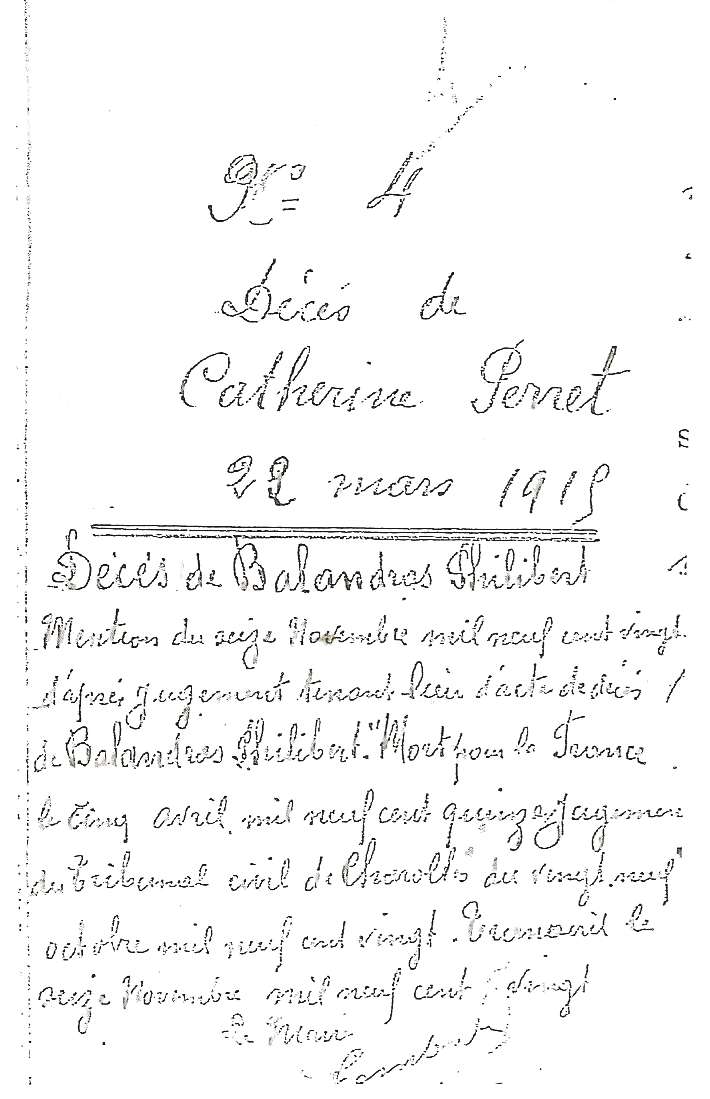 No 4
Décès de
Catherine Perret
22 mars 1915
Décès de Balandras Philibert
Mention du seize Novembre mil neuf cent vingt
d'après jugement tenant lieu d'acte de décès
de Balandras Philibert. "Mort pour la France
le cinq avril mil neuf cent quinze" Jugemen
du Tribunal civil de Charolles du vingt neuf
octobre mil neuf cent vingt. Transcrit le
seize Novembre mil neuf cent vingt
Le Maire